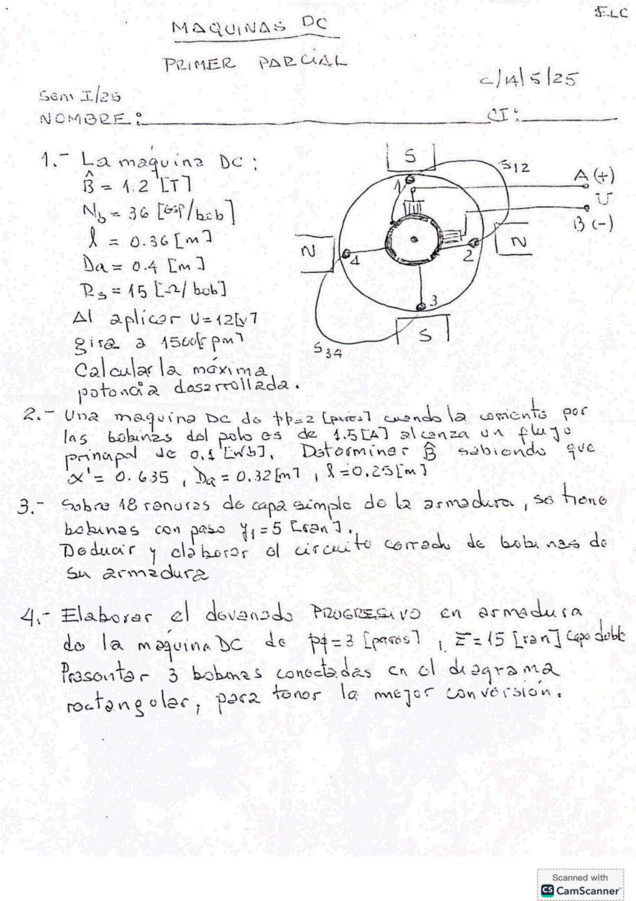 ELC
MAQUINAS DC
PRIMER PARCIAL
C/14/5/25
Sem I/25
NOMBRE:
CI:
1.- La maquina DC:
B̂ = 1.2 [T]
N_b = 36 [esp/bob]
l = 0.36 [m]
Da = 0.4 [m]
R_s = 15 [Ω/bob]
Al aplicar U=12[V]
gira a 1500[rpm]
Calcular la máxima
potencia desarrollada.
S
S12
A (+)
U
B (-)
1
N
4
2
N
3
S
S34
2.- Una maquina DC de pp=2 [pares] cuando la corriente por
las bobinas del polo es de 1.5[A] alcanza un flujo
principal de 0.1 [Wb]. Determinar B̂ sabiendo que
α' = 0.635, Da = 0.32[m], l = 0.25[m]
3.- Sobre 18 ranuras de capa simple de la armadura, se tiene
bobinas con paso y₁=5 [ran].
Deducir y elaborar el circuito cerrado de bobinas de
su armadura
4.- Elaborar el devanado PROGRESIVO en armadura
de la maquina DC de pp=3 [pares], Z=15 [ran] capa doble
Presentar 3 bobinas conectadas en el diagrama
rectangular, para tener la mejor conversión.
Scanned with
CS CamScanner